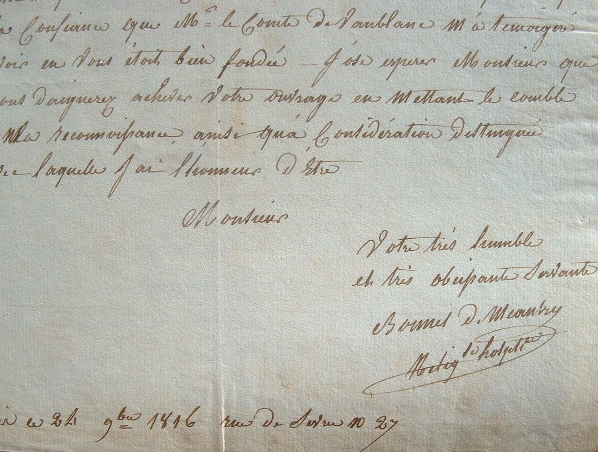 Confiance que Mr. le Comte de Vaublanc m'a temoigné
en vous étoit bien fondée — J'ose esperer Monsieur que
daignerez achever votre ouvrage en mettant le comble
ma reconnoissance, ainsi qu'a Considération distinguée
laquelle J'ai l'honneur d'Etre
Monsieur
Votre trés humble
et trés obeissante Servante
Bonnet D. Meautry
ce 24 9bre 1816 rue de Sevre no 27